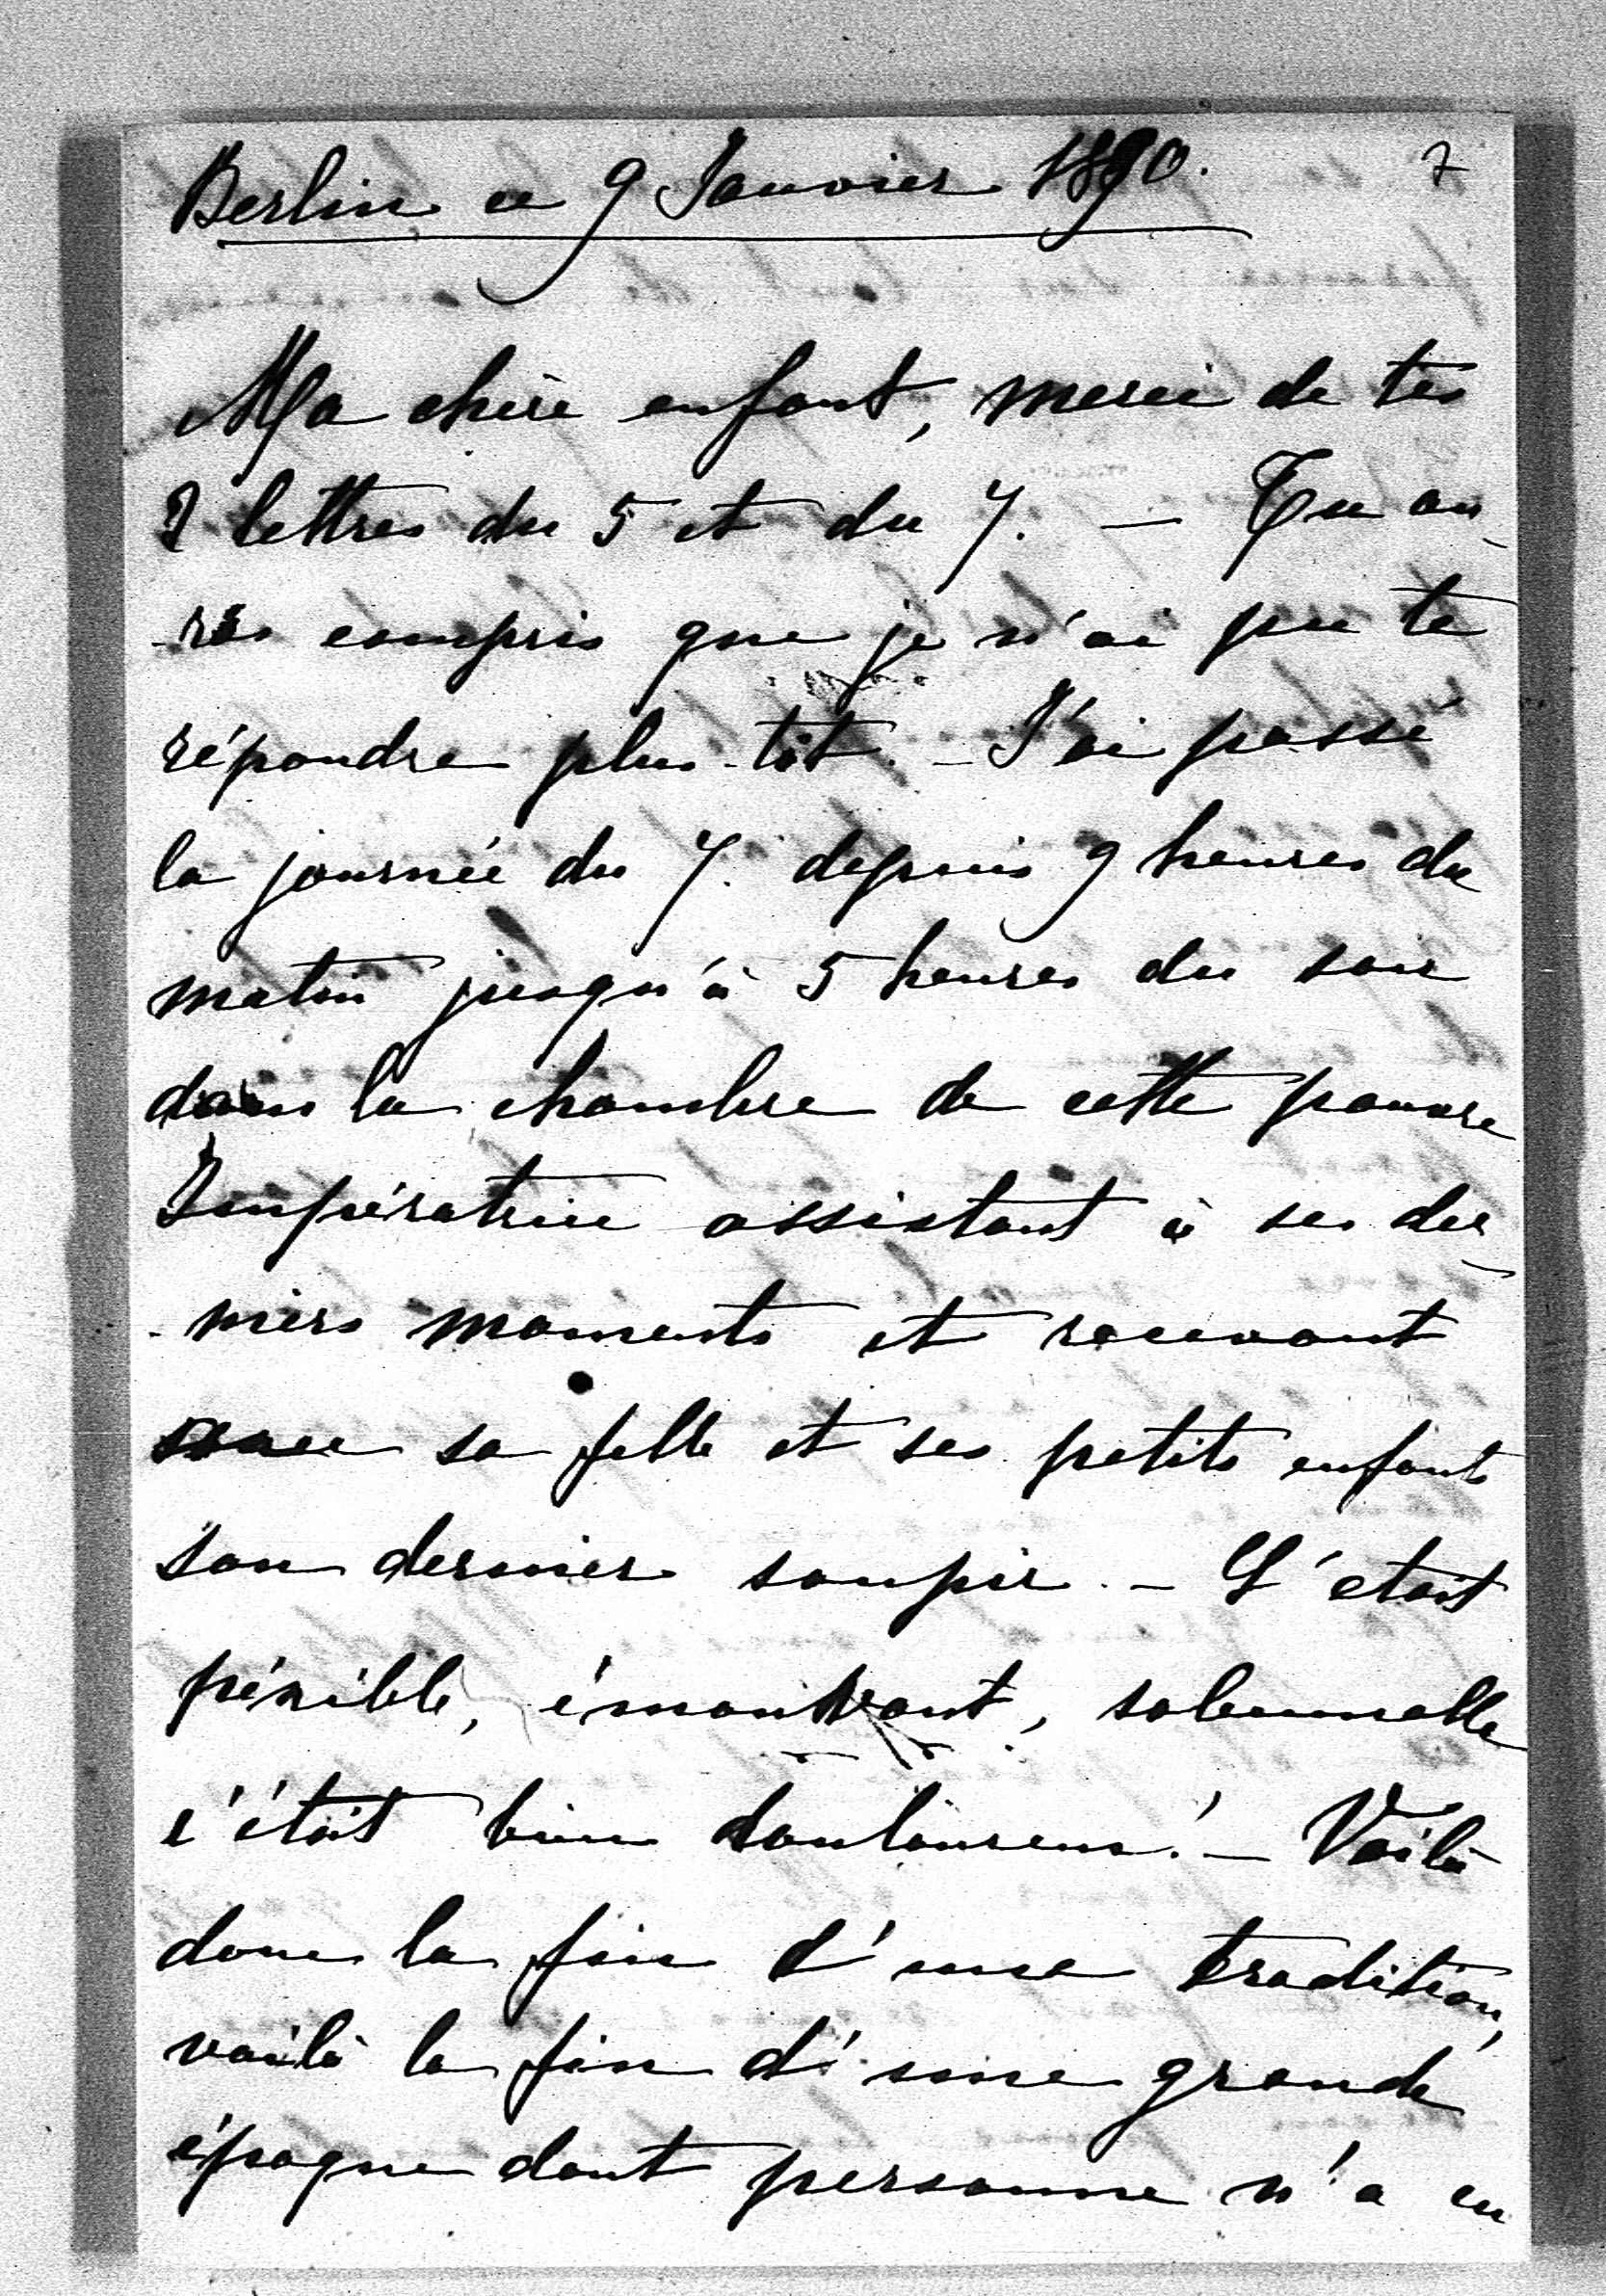 Berlin ce 9 Janvier 1890. 7
Ma chère enfant, merci de tes
2 lettres du 5 et du 7. — Tu au-
-ras compris que je n'ai pu te
répondre plus-tôt. — J'ai passé
la journée du 7. depuis 9 heures du
matin jusqu'à 5 heures du soir
dans la chambre de cette pauvre
Impératrice assistant à ses der-
-niers moments et recevant
avec sa fille et ses petits enfants
son dernier soupir. — C'etait
pénible, émouvant, solennelle
c'était bien douloureux! — Voilà
donc la fin d'une tradition,
voilà la fin d'une grande
époque dont personne n'a eu